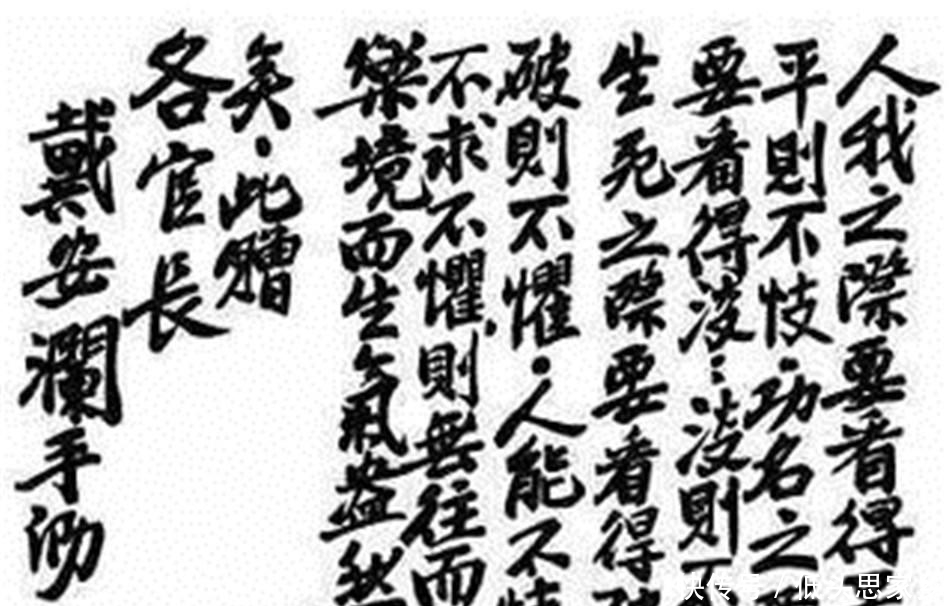 人我之際要看得
平則不忮·功名之
要看得淡：淡則不
生死之際要看得
破則不懼·人能不忮
不求不懼，則無往而
樂境而生氣盎
矣·此贈
各官長
戴安瀾手泐
快传号 / 低头思家